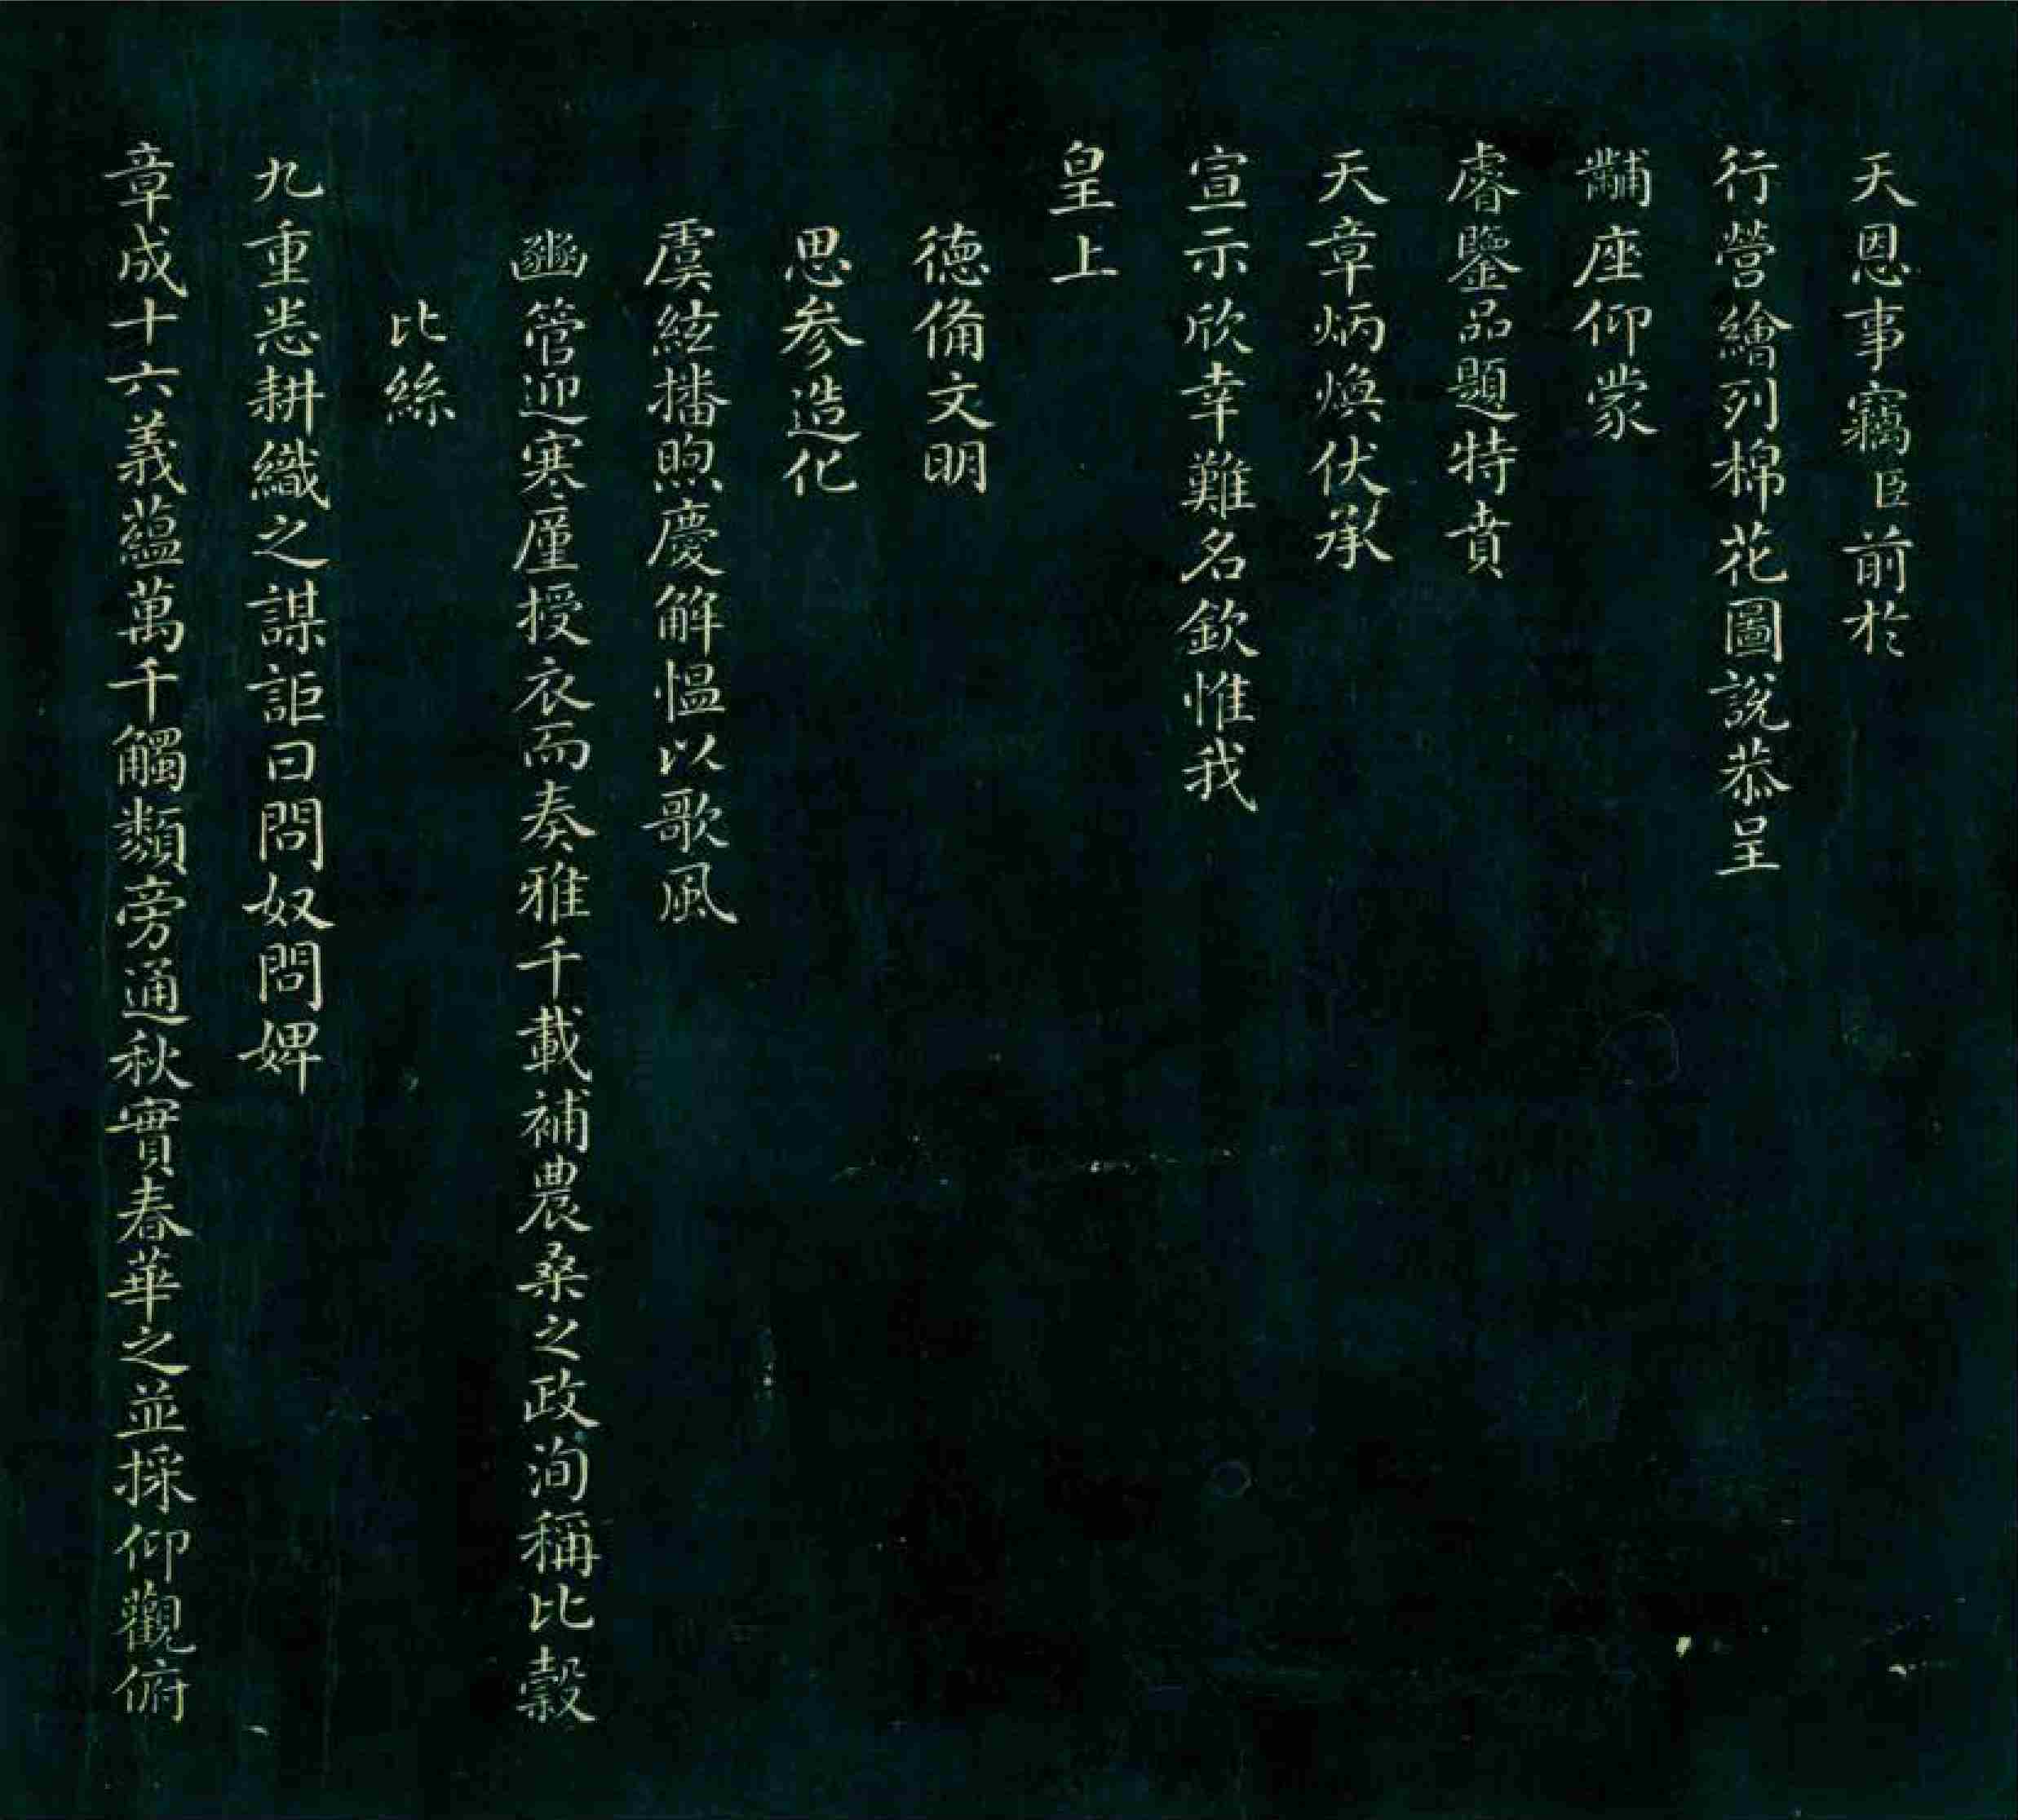 天恩事竊臣前於
行營繪列棉花圖說恭呈
黼座仰蒙
睿鑒品題特賁
天章炳煥伏承
宣示欣幸難名欽惟我
皇上
德備文明
思參造化
虞絃播煦慶解慍以歌風
豳管迎寒廑授衣而奏雅千載補農桑之政洵稱比穀
比絲
九重恙耕織之謀詎曰問奴問婢
章成十六義蘊萬千觸類旁通秋實春華之並採仰觀俯